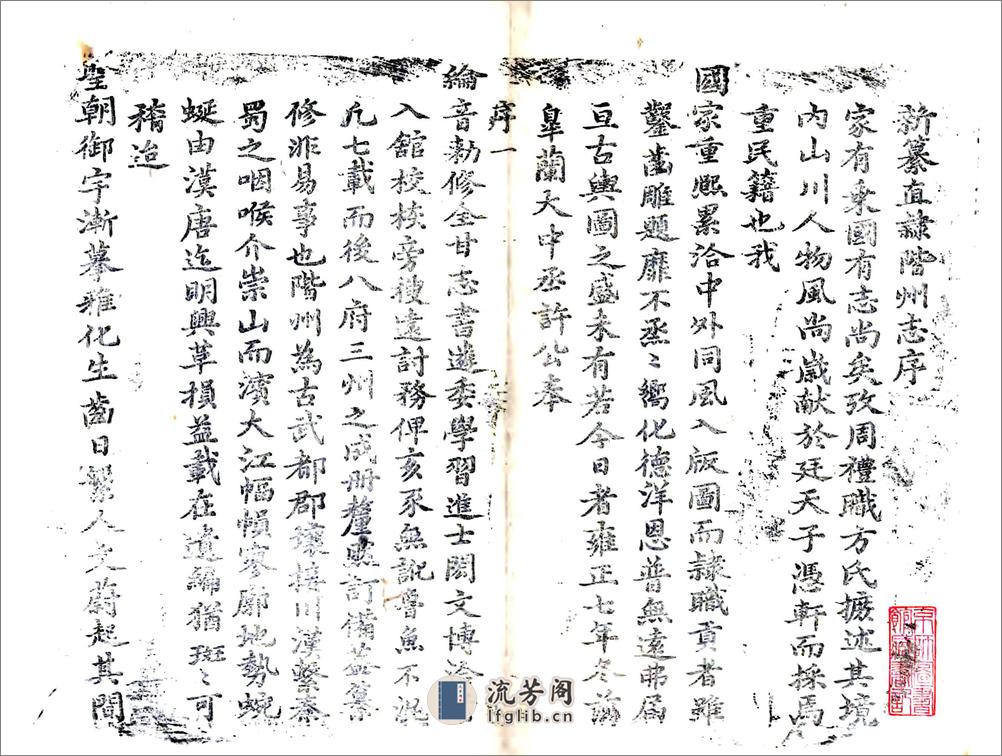 新纂直隸階州志序
家有乘國有志尚矣攷周禮職方氏摭述其境
内山川人物風尚歲献於廷天子憑軒而採焉
重民籍也我
國家重熙累洽中外同風入版圖而隷職貢者雖
鑿齒雕題靡不烝〻嚮化德洋恩普無遠弗届
亘古輿圖之盛未有若今日者雍正七年冬前
臯蘭大中丞許公奉
序一
綸音勅修全甘志書遴委學習進士閎文博洽
入舘校核旁搜遠討務俾亥豕無訛魯魚不混
凡七載而後八府三州之成册釐然訂備葢纂
修非易事也階州為古武都郡壤接川漢繫秦
蜀之咽喉介崇山而濱大江幅幀寥廓地勢蜿
蜒由漢唐迄明興革損益載在遺編猶班〻可
稽迨
皇朝御宇漸摹雅化生齒日繁人文蔚起其間
流芳阁
lfglib.cn